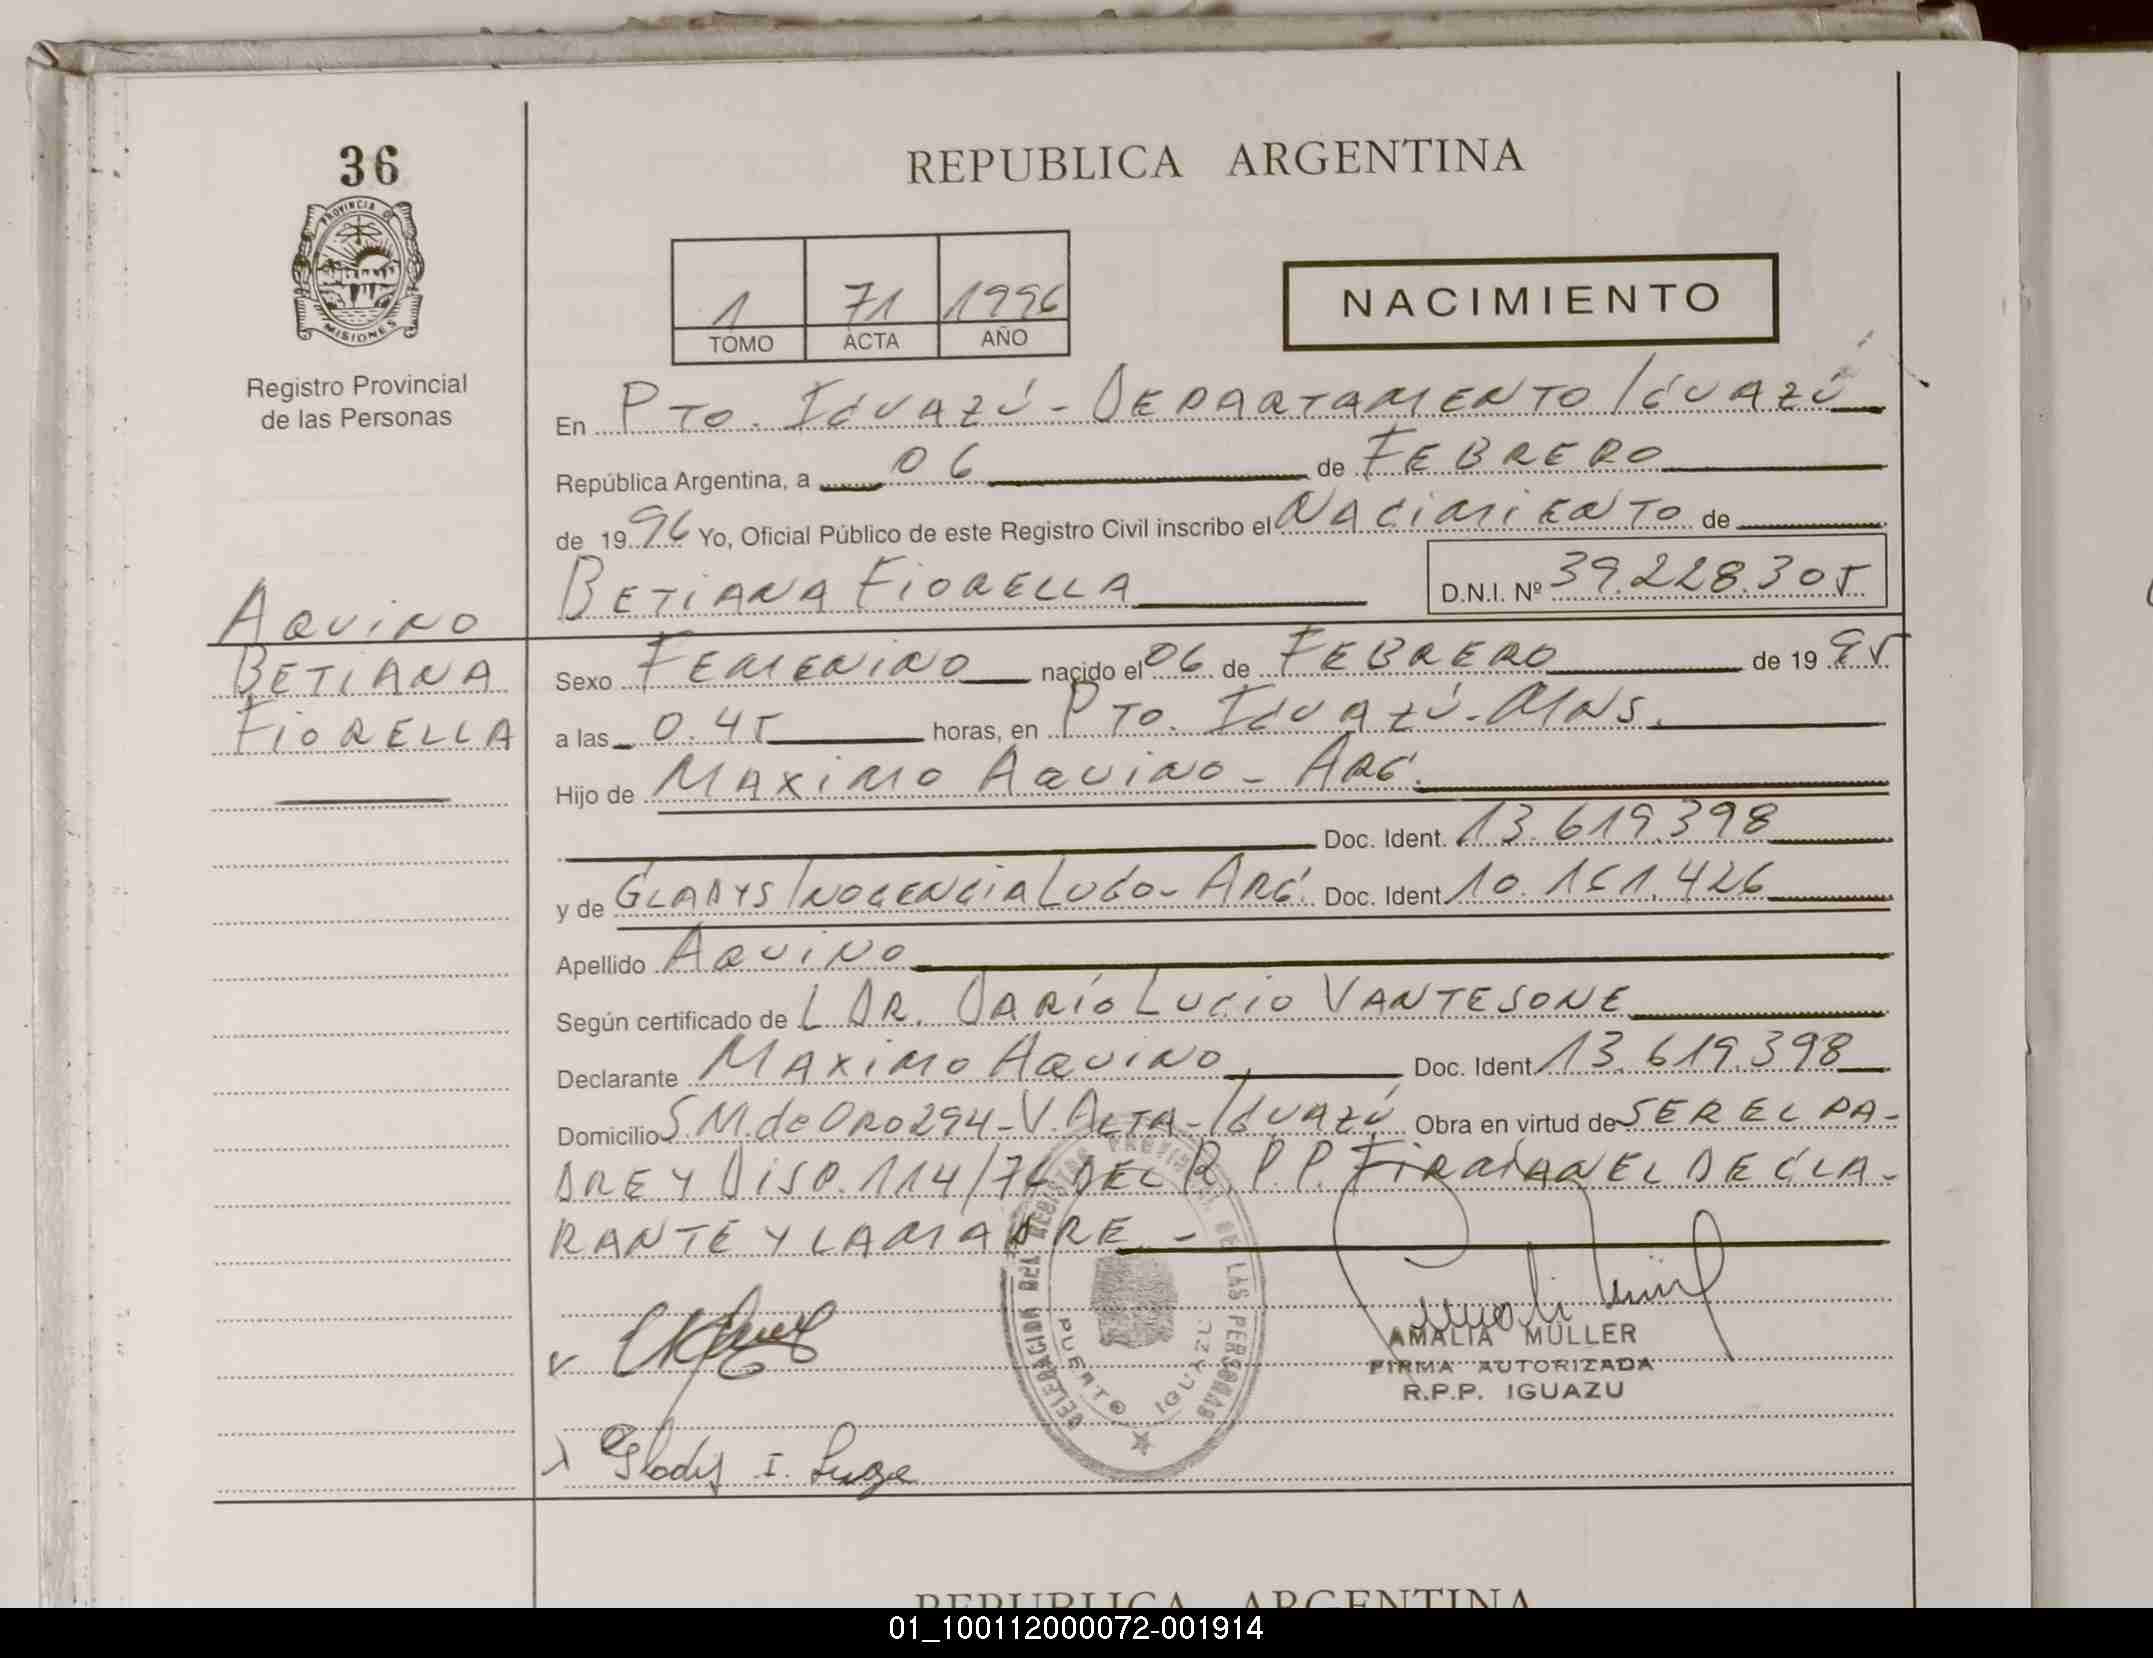 36
REPUBLICA ARGENTINA
PROVINCIA DE
MISIONES
1 71 1996
TOMO ACTA AÑO
NACIMIENTO
Registro Provincial
de las Personas
En PTO. IGUAZÚ - DEPARTAMENTO IGUAZÚ
República Argentina, a 06 de FEBRERO
de 1996 Yo, Oficial Público de este Registro Civil inscribo el NACIMIENTO de
BETIANA FIORELLA D.N.I. Nº 39.228.305
AQUINO
BETIANA
FIORELLA
Sexo FEMENINO nacido el 06 de FEBRERO de 1995
a las 0.45 horas, en PTO. IGUAZÚ - MNS.
Hijo de MAXIMO AQUINO - ARG.
Doc. Ident. 13.619.398
y de GLADYS INOCENCIA LUGO - ARG. Doc. Ident. 10.161.426
Apellido AQUINO
Según certificado de L DR. DARÍO LUCIO VANTESONE
Declarante MAXIMO AQUINO Doc. Ident. 13.619.398
Domicilio S.M. de ORO 294 - V. ALTA - IGUAZÚ Obra en virtud de SER EL PA-
DRE Y DISP. 114/76 DEL R.P.P. FIRMAN EL DECLA-
RANTE Y LA MADRE. -
DELEGACION DEL REGISTRO PROVINCIAL DE LAS PERSONAS
PUERTO IGUAZU
AMALIA MULLER
FIRMA AUTORIZADA
R.P.P. IGUAZU
Gladys I. Lugo
REPUBLICA ARGENTINA
01_100112000072-001914